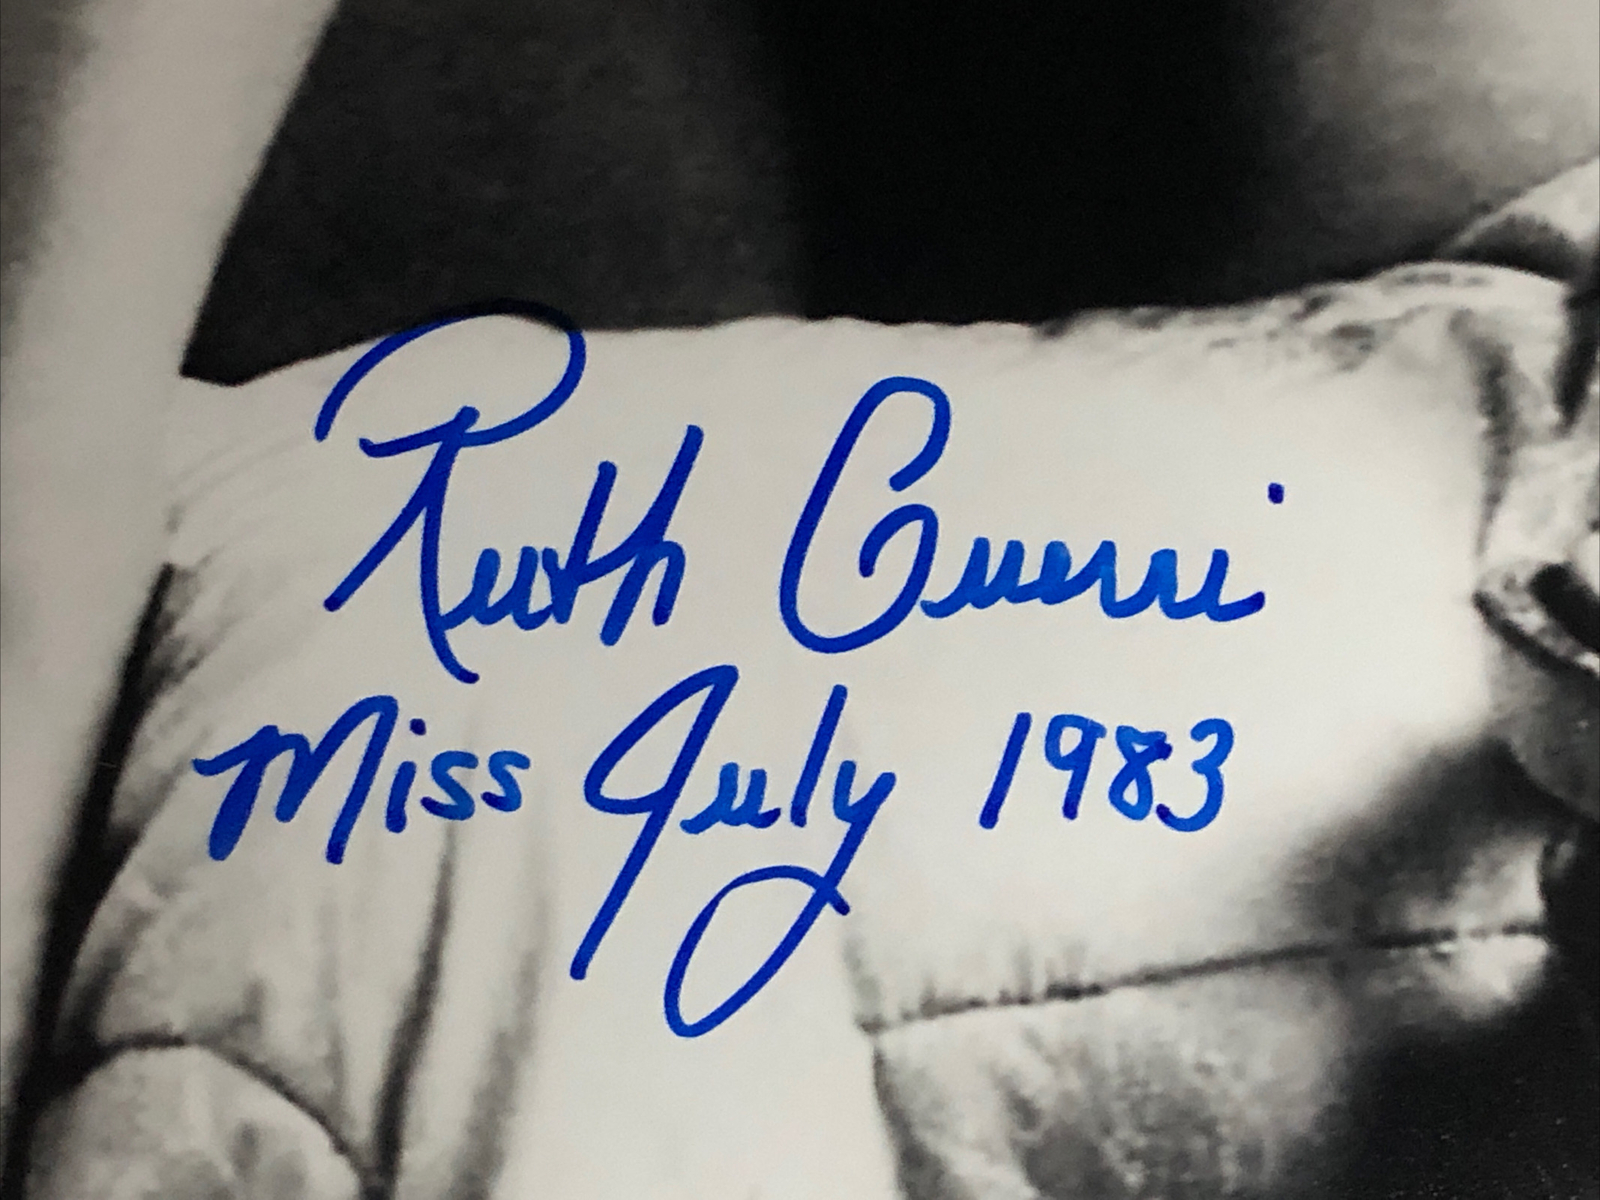 Ruth Guerri
Miss July 1983